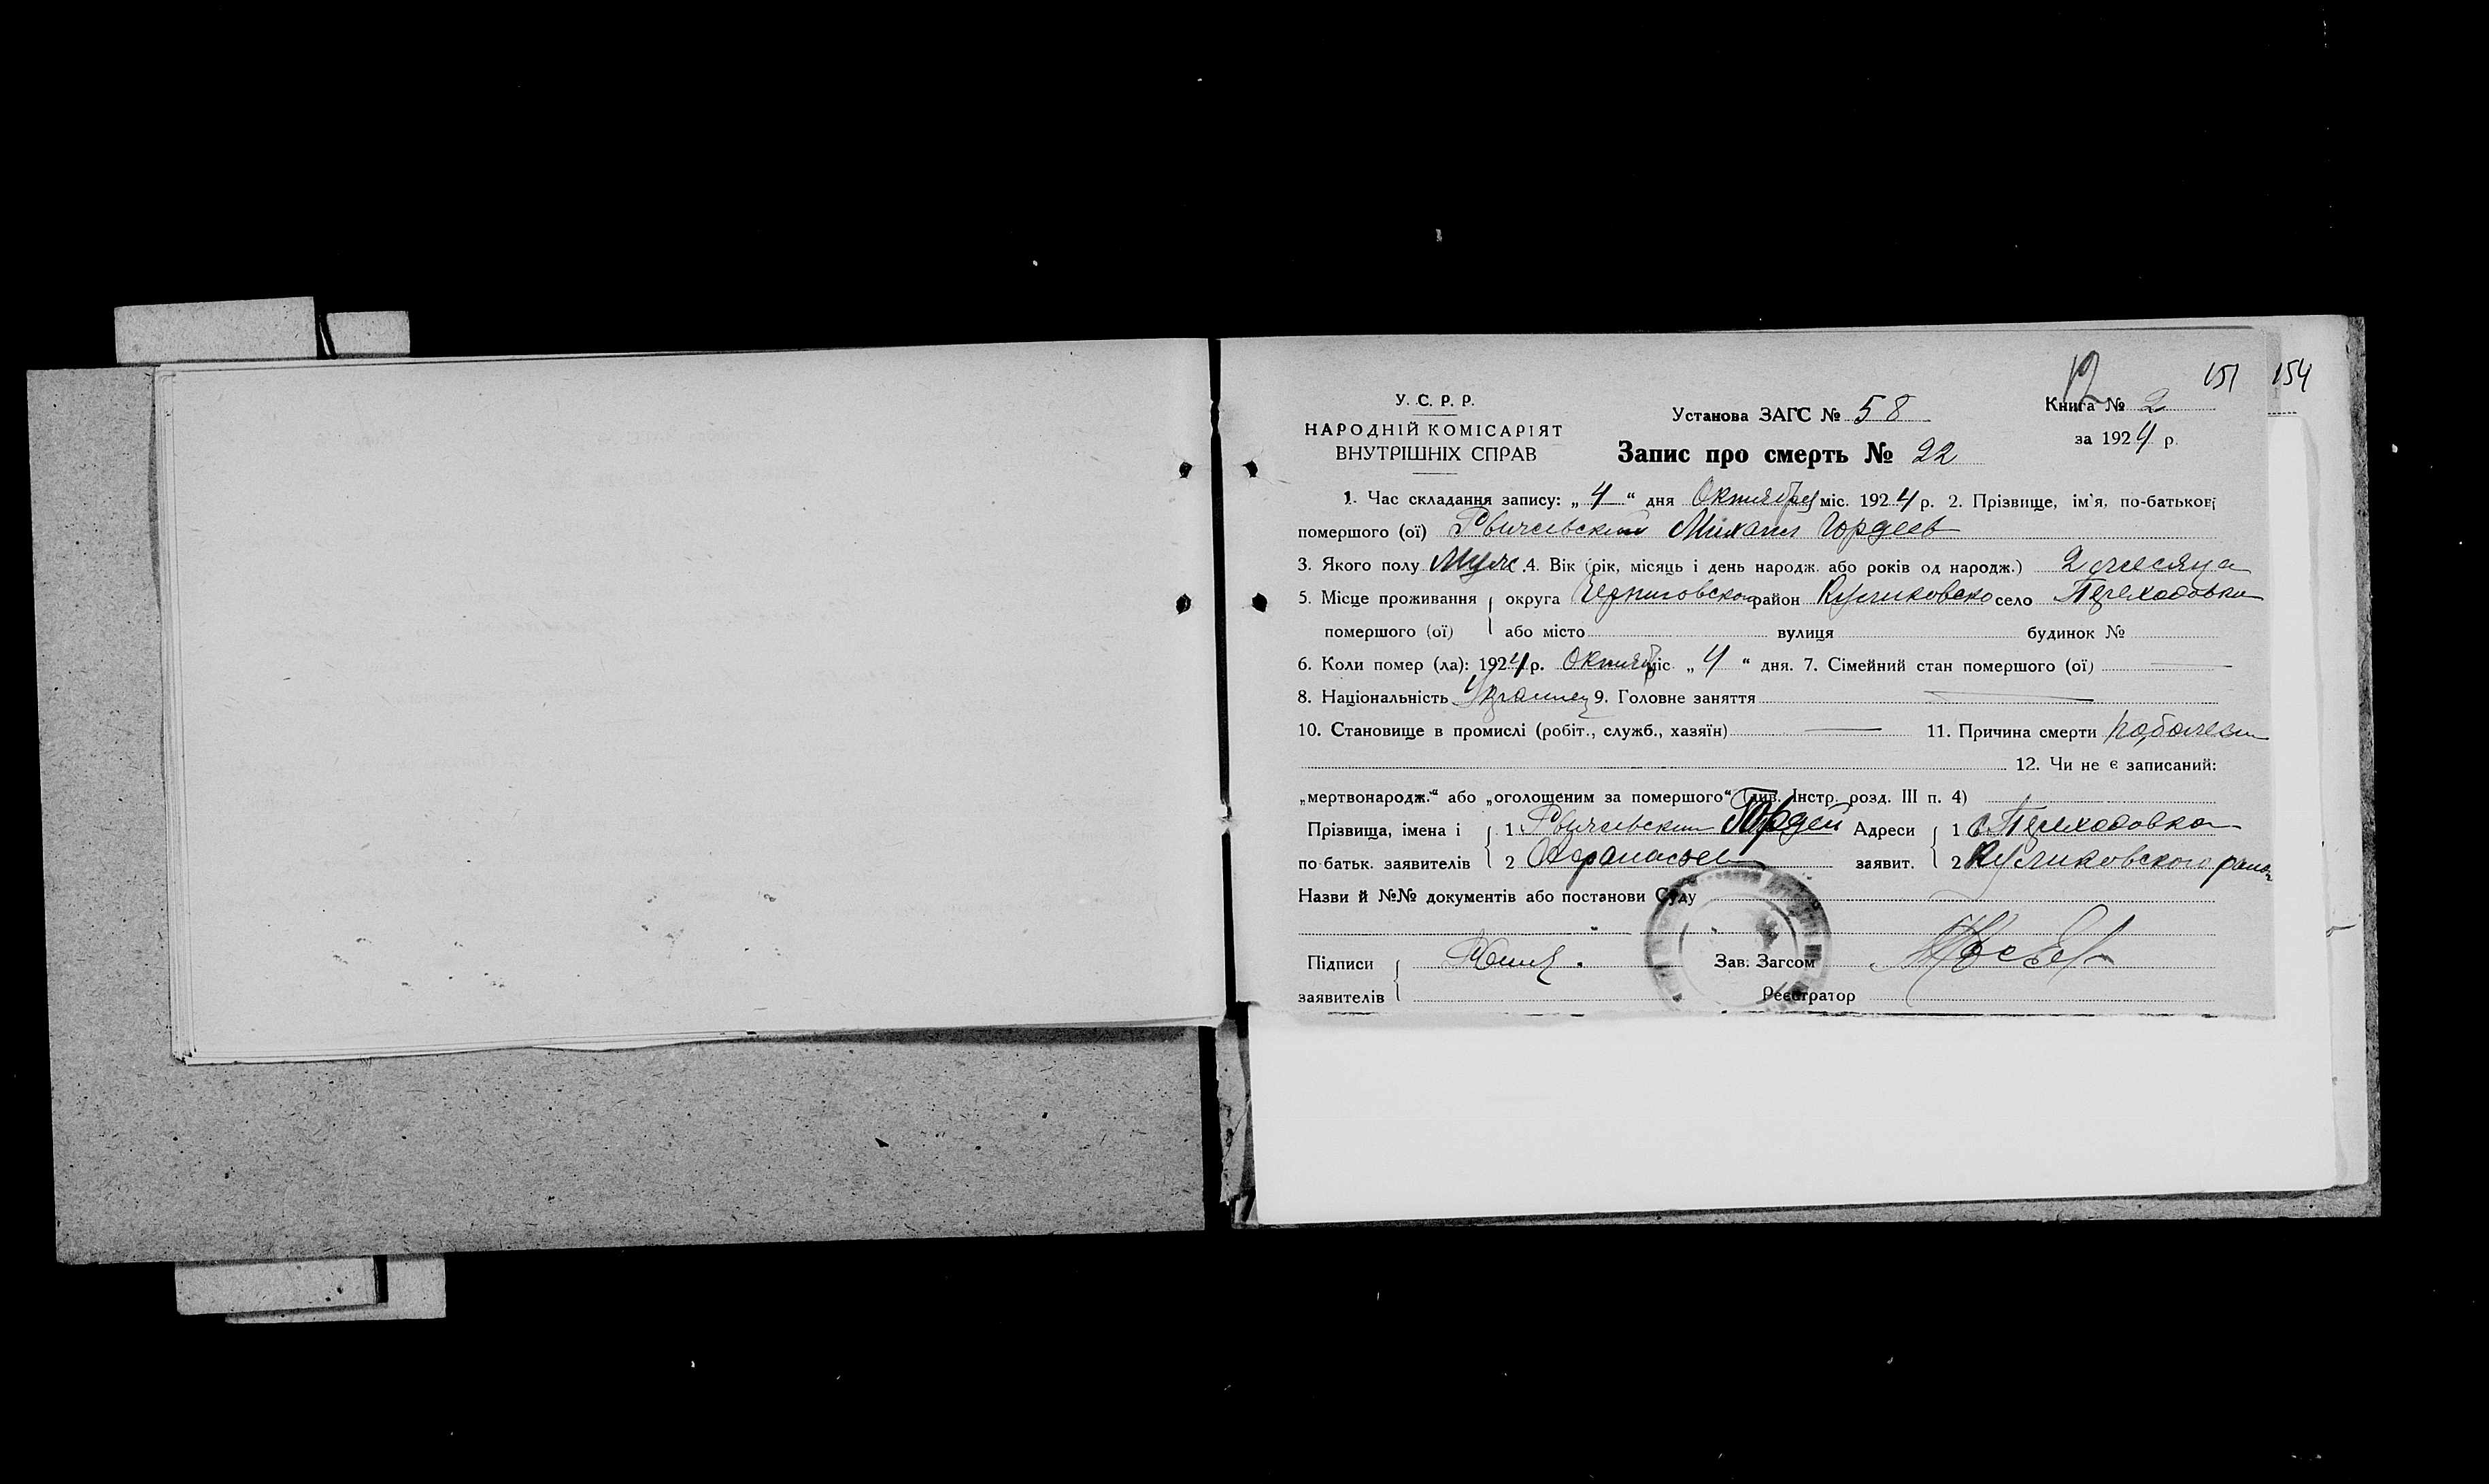 12 151 154
У. С. Р. Р.
НАРОДНІЙ КОМІСАРІЯТ
ВНУТРІШНІХ СПРАВ
Установа ЗАГС № 58
Книга № 2
за 1924 р.
Запис про смерть № 22
1. Час складання запису: „ 4 “ дня Октября міс. 1924 р. 2. Прізвище, ім'я, по-батькові
помершого (ої) Михаил Гордеев
3. Якого полу Муж. 4. Вік (рік, місяць і день народж. або років од народж.) 2 месяца
5. Місце проживання округа Черниговского район Куликовско село Переходовки
помершого (ої) або місто вулиця будинок №
6. Коли помер (ла): 1924 р. Октяб міс. „ 4 “ дня. 7. Сімейний стан помершого (ої)
8. Національність Украинец 9. Головне заняття
10. Становище в промислі (робіт., служб., хазяїн) 11. Причина смерти
12. Чи не є записаний:
„мертвонародж.“ або „оголошеним за помершого“ (див. Інстр. розд. III п. 4)
Прізвища, імена і 1 Гордей Адреси 1 с. Переходовка
по батьк. заявителів 2 Афанасьев заявит. 2 Куликовского район
Назви й №№ документів або постанови Суду
Підписи Зав. Загсом
заявителів Реєстратор